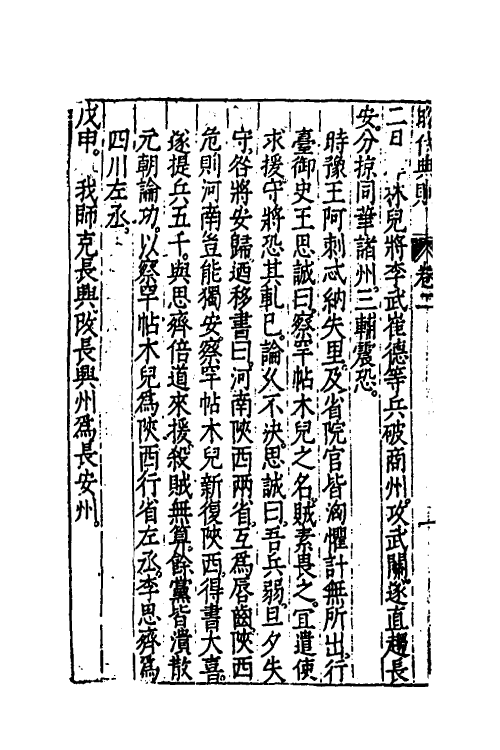 昭代典則 卷二
二日 林兒將李武崔德等兵破商州。攻武關。遂直趨長
安。分掠同華諸州。三輔震恐。
時豫王阿剌忒納失里。及省院官皆洶懼計無所出。行
臺御史王思誠曰。察罕帖木兒之名。賊素畏之。宜遣使
求援。守將恐其軋已。論久不決。思誠曰。吾兵弱。旦夕失
守。咎將安歸。遒移書曰。河南陝西兩省。互爲唇齒。陝西
危則河南豈能獨安。察罕帖木兒新復陝西。得書大喜。
遂提兵五千。與思齊倍道來援。殺賊無算。餘黨皆潰散
元朝論功。以察罕帖木兒爲陝西行省左丞。李思齊爲
四川左丞。
戊申。 我師克長興改長興州爲長安州。